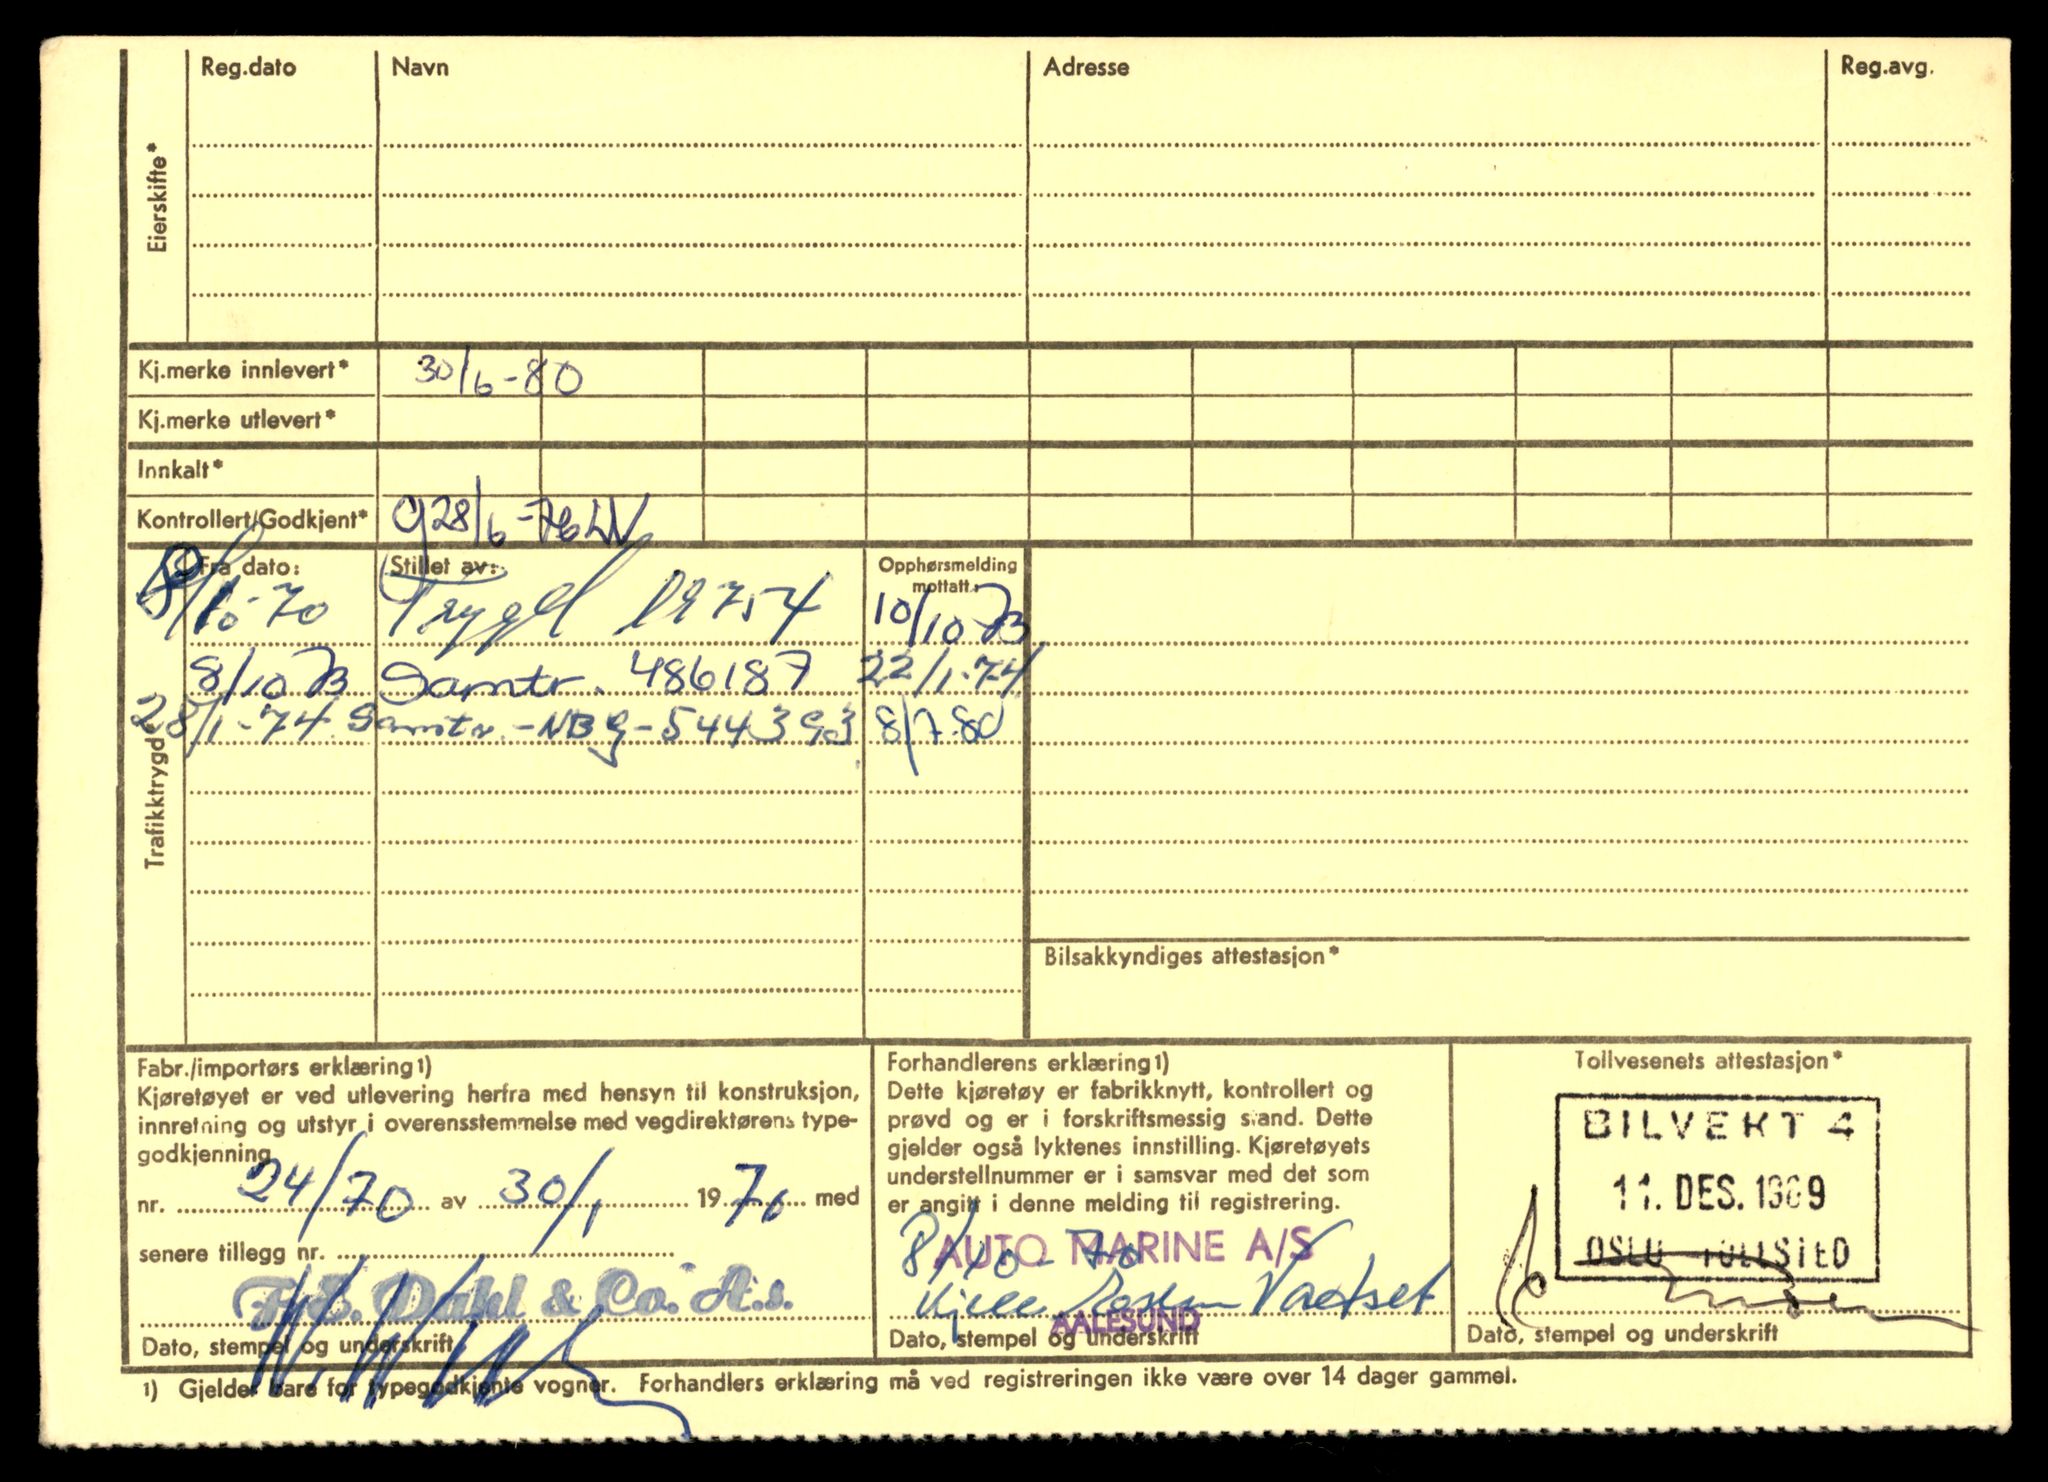 Reg.dato Navn Adresse Reg.avg.
Eierskifte*
Kj.merke innlevert* 30/6-80
Kj.merke utlevert*
Innkalt*
Kontrollert/Godkjent* g 28/6-76 LN
Trafikktrygd
Fra dato: Stillet av: Opphørsmelding mottatt:
8/10-70 19754 10/10 73
8/10 73 Samtr. 486187 22/1-74
28/1-74 Samtr.-NBG-544393 8/7-80
Bilsakkyndiges attestasjon*
Fabr./importørs erklæring1)
Kjøretøyet er ved utlevering herfra med hensyn til konstruksjon,
innretning og utstyr i overensstemmelse med vegdirektørens type-
godkjenning
nr. 24/70 av 30/1 1970 med
senere tillegg nr.
Dahl & Co. A.s.
Dato, stempel og underskrift
Forhandlerens erklæring1)
Dette kjøretøy er fabrikknytt, kontrollert og
prøvd og er i forskriftsmessig stand. Dette
gjelder også lyktenes innstilling. Kjøretøyets
understellnummer er i samsvar med det som
er angitt i denne melding til registrering.
8/10-70
AUTO MARINE A/S
AALESUND
Dato, stempel og underskrift
Tollvesenets attestasjon*
BILVEKT 4
11. DES. 1969
OSLO TOLLSTED
Dato, stempel og underskrift
1) Gjelder bare for typegodkjente vogner. Forhandlers erklæring må ved registreringen ikke være over 14 dager gammel.